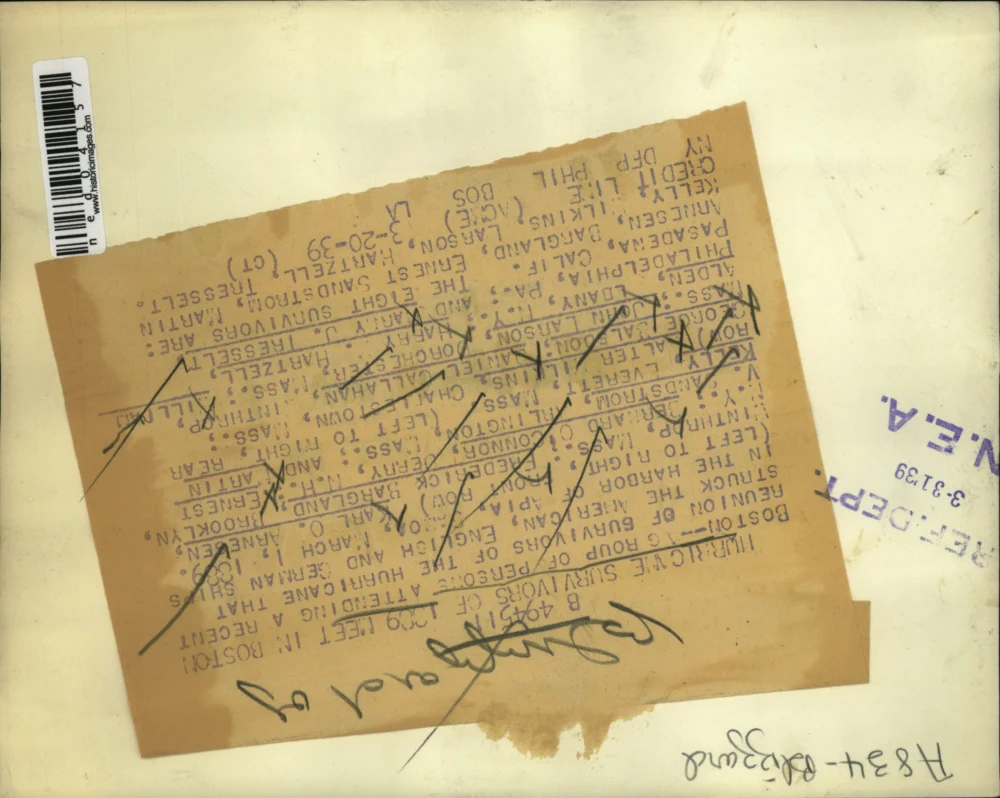 A834-Blizzard
and
B 494511
HURRICANE SURVIVORS OF 1889 MEET IN BOSTON
BOSTON--A GROUP OF PERSONS ATTENDING A RECENT
REUNION OF SURVIVORS OF THE HURRICANE THAT
STRUCK THE AMERICAN, ENGLISH AND GERMAN SHIPS
IN THE HARBOR OF APIA, MARCH 1889.
(LEFT TO RIGHT, FRONT ROW) CARL O. ARNESEN,
WINTHROP, MASS.; FREDERICK BARGLAND, BROOKLYN,
N.Y.; BERNARD O'CONNOR, DERRY, N.H.; ERNEST
V. SANDSTROM, ARLINGTON, MASS.; AND MARTIN
KELLY, EVERETT, MASS. (LEFT TO RIGHT, REAR
ROW) WALTER WILKINS, CHARLESTOWN, MASS.;
GEORGE DANIEL CALLAHAN, WINTHROP,
MASS.; JOHN LARSON, DORCHESTER, MASS.; WILLIAM
ALDEN, ALBANY, N.Y.; HARRY HARTZELL,
PHILADELPHIA, PA.; AND HARRY J. TRESSELT,
PASADENA, CALIF. THE EIGHT SURVIVORS ARE:
ARNESEN, BARGLAND, ERNEST SANDSTROM, MARTIN
KELLY, WILKINS, LARSON, HARTZELL, TRESSELT.
CREDIT LINE (ACME) 3-20-39 (CT)
NY DFP PHIL BOS LA
REF. DEPT.
3-31'39
N.E.A.
ned04157
www.historicimages.com